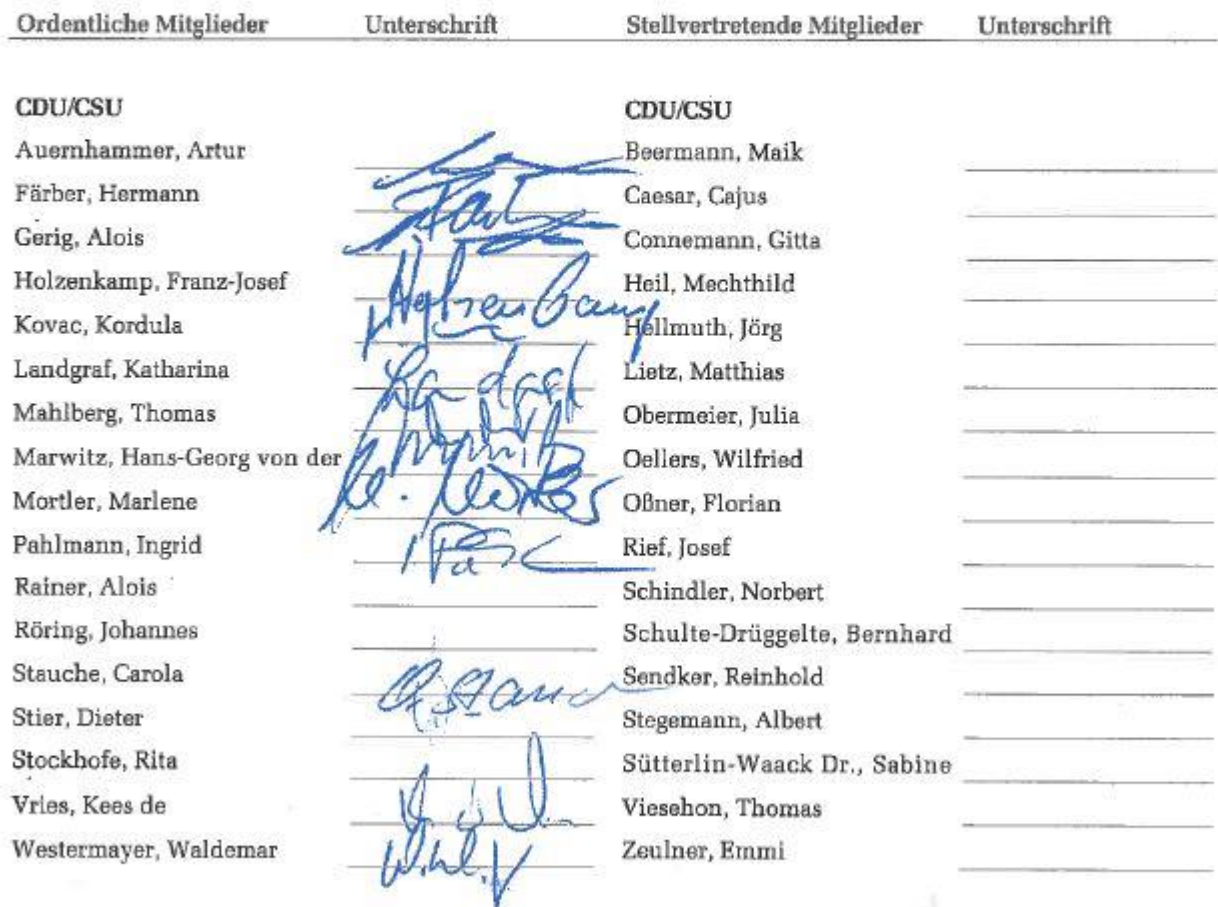 Ordentliche Mitglieder Unterschrift Stellvertretende Mitglieder Unterschrift
CDU/CSU CDU/CSU
Auernhammer, Artur Beermann, Maik
Färber, Hermann Caesar, Cajus
Gerig, Alois Connemann, Gitta
Holzenkamp, Franz-Josef Heil, Mechthild
Kovac, Kordula Hellmuth, Jörg
Landgraf, Katharina Lietz, Matthias
Mahlberg, Thomas Obermeier, Julia
Marwitz, Hans-Georg von der Oellers, Wilfried
Mortler, Marlene Oßner, Florian
Pahlmann, Ingrid Rief, Josef
Rainer, Alois Schindler, Norbert
Röring, Johannes Schulte-Drüggelte, Bernhard
Stauche, Carola Sendker, Reinhold
Stier, Dieter Stegemann, Albert
Stockhofe, Rita Sütterlin-Waack Dr., Sabine
Vries, Kees de Viesehon, Thomas
Westermayer, Waldemar Zeulner, Emmi